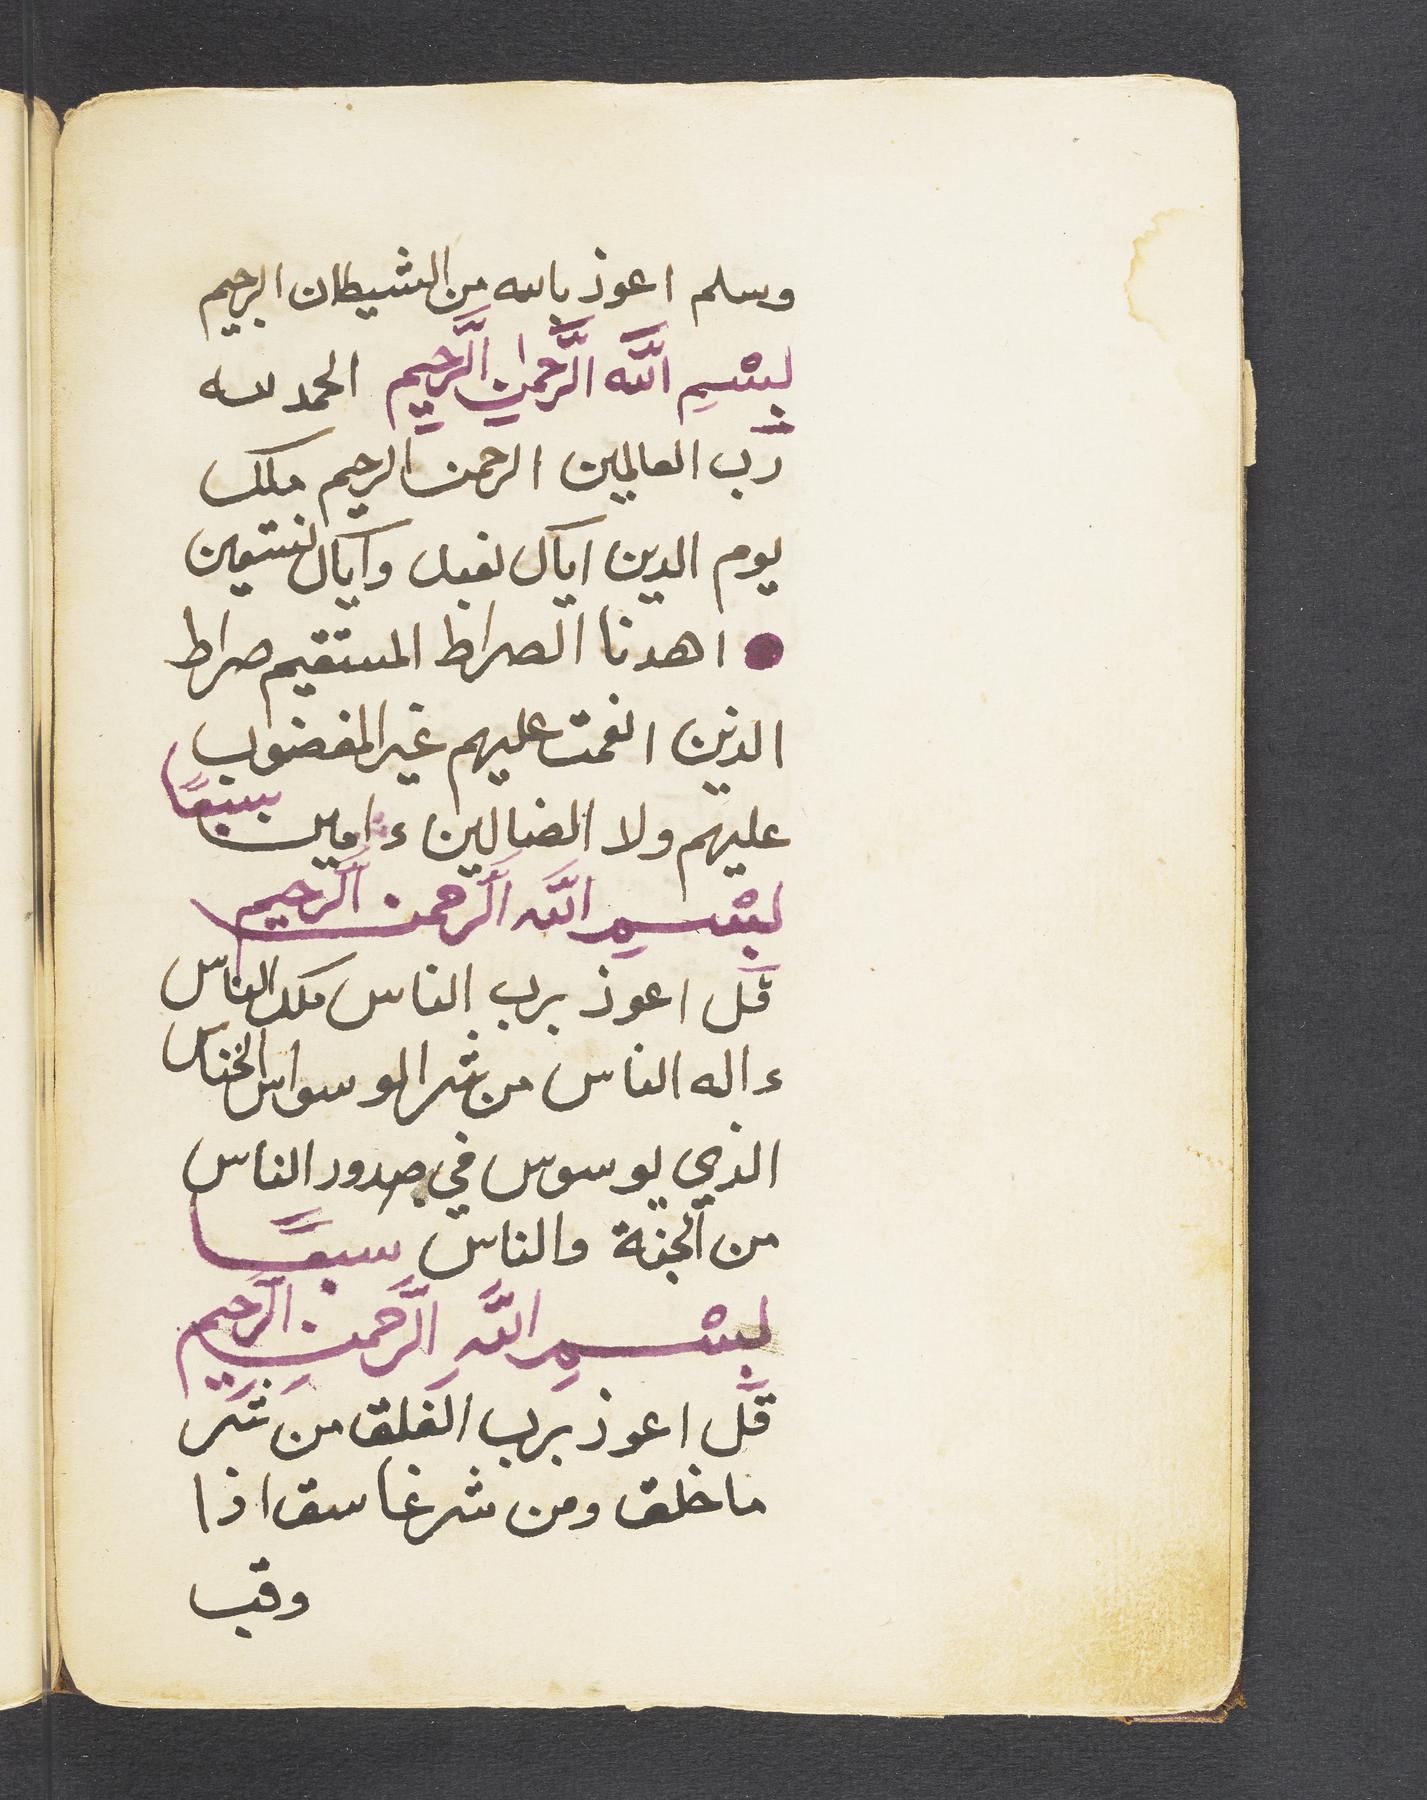 وسلم اعوذ بالله من الشيطان الرجيم
بِسْمِ اللَّه الرَّحمٰنِ الرَّحِيمِ الحمد لله
رب العالمين الرحمن الرحيم ملك
يوم الدين اياك نعبد واياك نستعين
اهدنا الصراط المستقيم صراط
الذين انعمت عليهم غير المغضوب
عليهم ولا الضالين ءامين سبعًا
بِسْمِ اللَّه الرَّحمن الرَّحيم
قل اعوذ برب الناس ملك الناس
ءاله الناس من شر الوسواس الخناس
الذي يوسوس في صدور الناس
من الجنة والناس سبعًا
بِسْمِ اللَّهِ الرَّحمنِ الرَّحِيمِ
قل اعوذ برب الفلق من شر
ما خلق ومن شر غاسق اذا
وقب